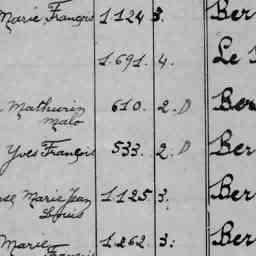 Marie François 1.124 3. Ber
1.691. 4. Le
Mathurin 610. 2. D Ber
Malo
Yves François 533. 2. D Ber
Marie Jean 1.125 3. Ber
Louis
Marie 1.262. 3. Ber
François